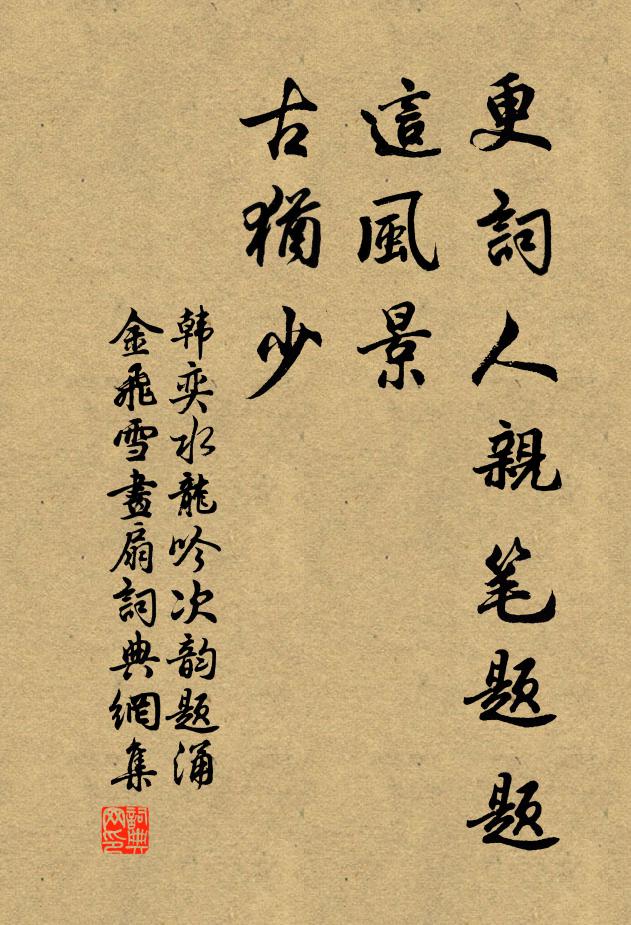 更詞人親笔題題
這風景
古猶少
韩奕水龍吟次韵題涌
金飛雪畫扇詞典網集
詞典网印